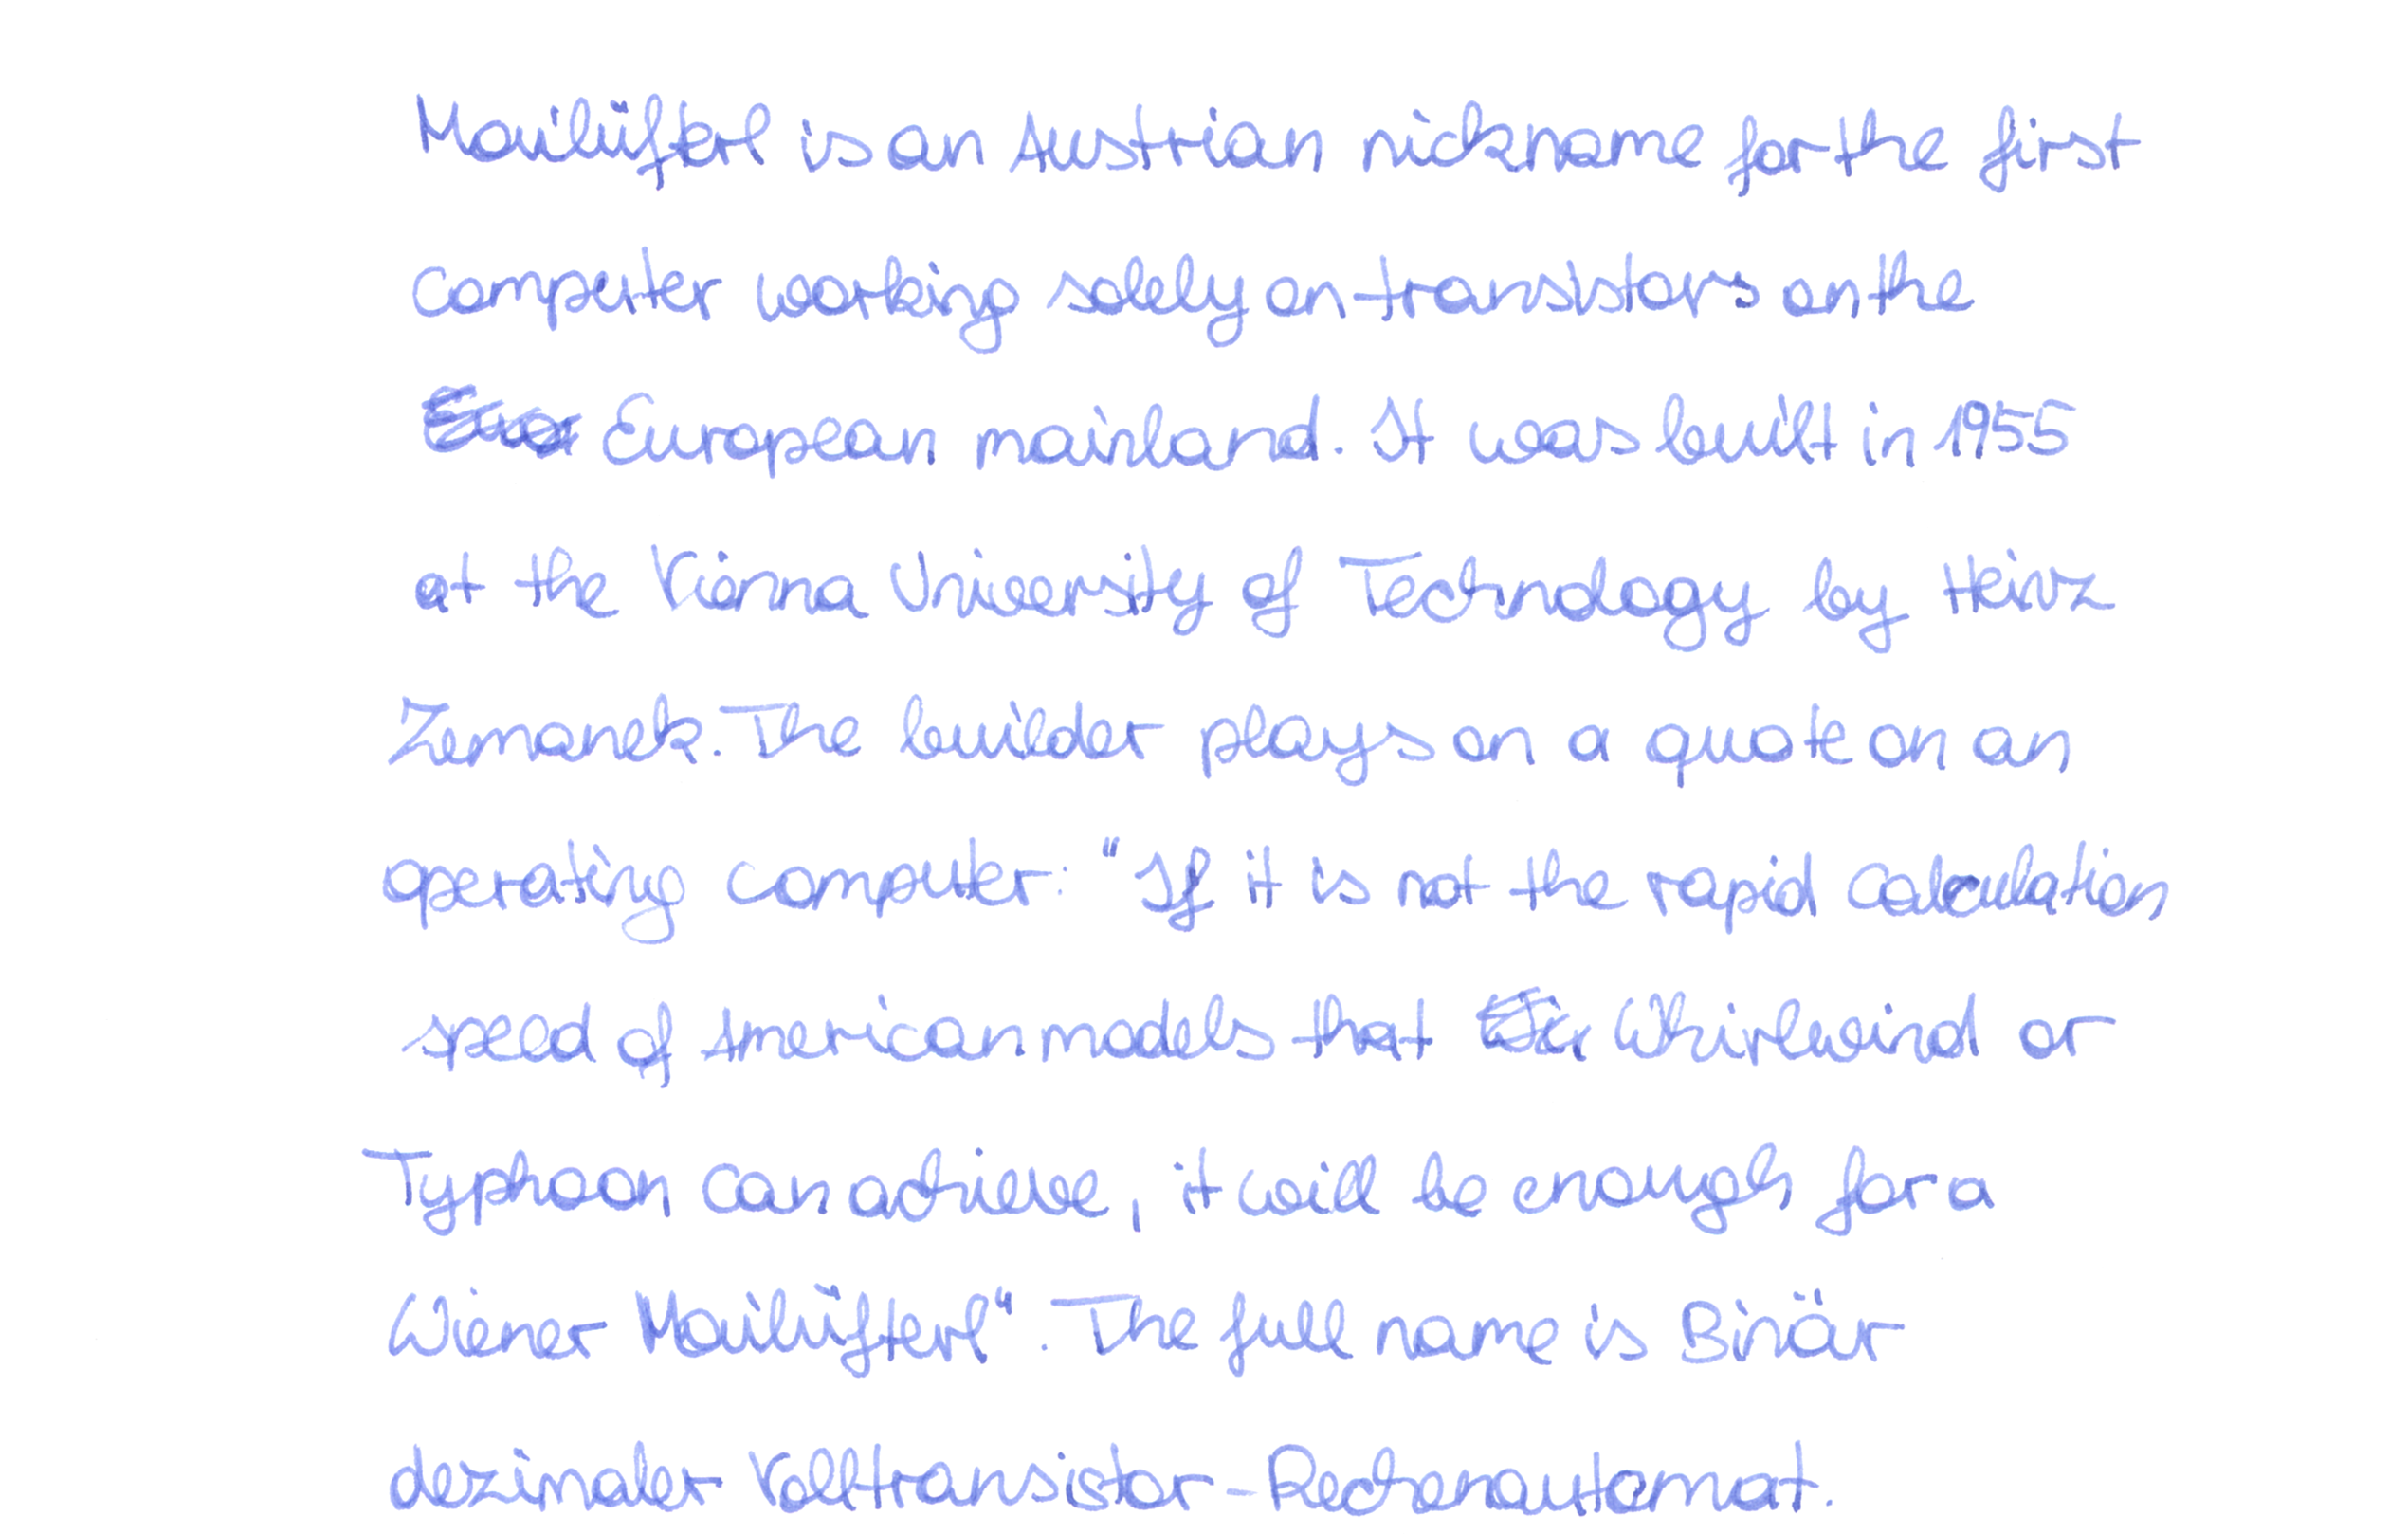 Mailüfterl is an Austrian nickname for the first
computer working solely on transistors on the
European mainland. It was built in 1955
at the Vienna University of Technology by Heinz
Zemanek. The builder plays on a quote on an
operating computer: “If it is not the rapid calculation
speed of American models that Whirlwind or
Typhoon can achieve, it will be enough for a
Wiener Mailüfterl“. The full name is Binär
dezimaler Volltransistor-Rechenautomat.